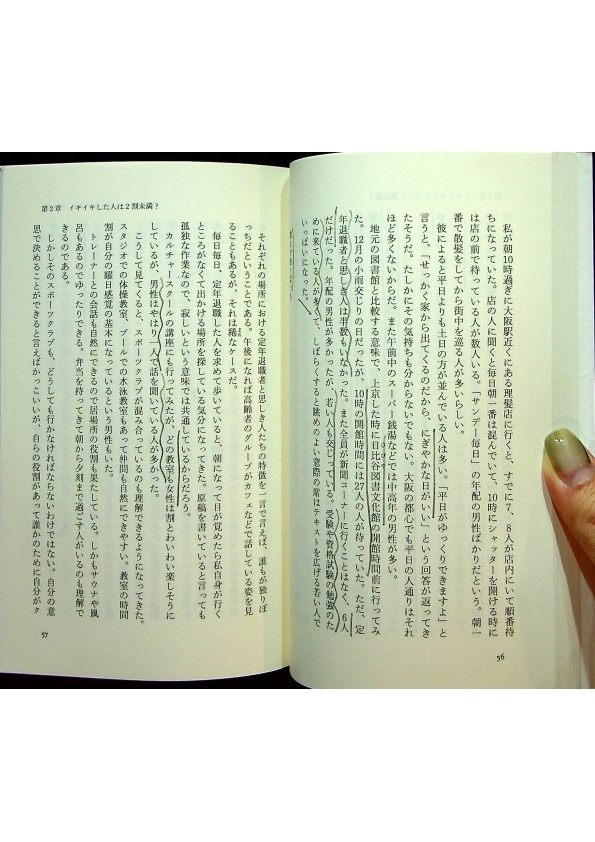 私が朝10時過ぎに大阪駅近くにある理髪店に行くと、すでに7、8人が店内にいて順番待
ちになっていた。店の人に聞くと毎日朝一番は混んでいて、10時にシャッターを開ける時に
は店の前で待っている人が数人いる。「サンデー毎日」の年配の男性ばかりだという。朝一
番で散髪をしてから街中を巡る人が多いらしい。
彼によると平日よりも土日の方が並んでいる人は多い。「平日がゆっくりできますよ」と
言うと、「せっかく家から出てくるのだから、にぎやかな日がいい」という回答が返ってき
たそうだ。たしかにその気持ちも分からないでもない。大阪の都心でも平日の人通りはそれ
ほど多くないからだ。また午前中のスーパー銭湯などでは中高年の男性が多い。
地元の図書館と比較する意味で、上京した時に日比谷図書文化館の開館時間前に行ってみ
た。12月の小雨交じりの日だったが、10時の開館時間には27人の人が待っていた。ただ、定
年退職者と思しき人は半数もいなかった。また全員が新聞コーナーに行くことはなく、6人
だけだった。年配の男性が多かったが、若い人も交じっている。受験や資格試験の勉強のた
めに来ている人が多くて、しばらくすると眺めのよい窓際の席はテキストを広げる若い人で
いっぱいになった。
56
第2章 イキイキした人は2割未満?
それぞれの場所における定年退職者と思しき人たちの特徴を一言で言えば、誰もが独りぼ
っちだということである。午後になれば高齢者のグループがカフェなどで話している姿を見
ることもあるが、それは稀なケースだ。
毎日毎日、定年退職した人を求めて歩いていると、朝になって目が覚めたら私自身が行く
ところがなくて出かける場所を探している気分になってきた。原稿を書いていると言っても
孤独な作業なので、寂しいという意味では共通しているからだろう。
カルチャースクールの講座にも行ってみたが、どの教室も女性は割とわいわい楽しそうに
しているが、男性はやはり一人で話を聞いている人が多かった。
こうして見てくると、スポーツクラブが混み合っているのも理解できるようになってきた。
スタジオでの体操教室、プールでの水泳教室もあって仲間も自然にできやすい。教室の時間
割が自分の曜日感覚の基本になっているという男性もいた。
トレーナーとの会話も自然にできるので居場所の役割も果たしている。しかもサウナや風
呂もあるのでゆったりできる。弁当を持ってきて朝から夕刻まで過ごす人がいるのも理解で
きるのである。
しかしそのスポーツクラブも、どうしても行かなければならないわけではない。自分の意
思で決めることができると言えばかっこいいが、自らの役割があって誰かのために自分がク
57